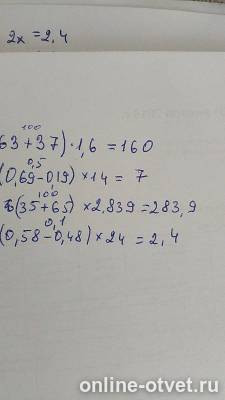 2x = 2,4
100
63 + 37) · 1,6 = 160
0,5
(0,69 - 0,19) × 14 = 7
100
(35 + 65) × 2,839 = 283,9
0,1
(0,58 - 0,48) × 24 = 2,4
online-otvet.ru